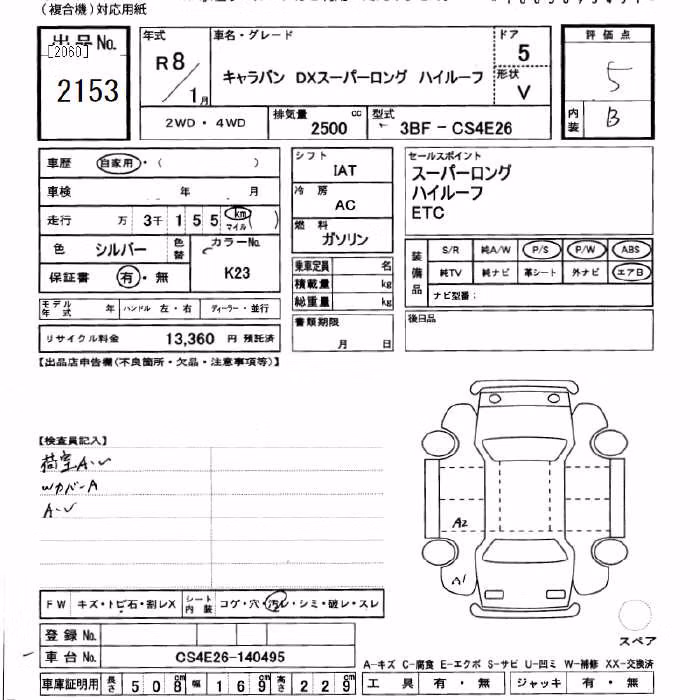 (複合機)対応用紙
出品No.
[2060]
2153
年式
R8/1月
車名・グレード
キャラバン DXスーパーロング ハイルーフ
ドア
5
形状
V
評価点
5
内装
B
2WD・4WD
排気量
2500 cc
型式
3BF-CS4E26
車歴 自家用・( )
車検 年 月
走行 万 3千 1 5 5 km マイル ( )
色 シルバー 色替 カラーNo.
K23
保証書 有・無
モデル年式 年 ハンドル 左・右 ディーラー・並行
リサイクル料金 13,360 円 預託済
シフト
IAT
冷房
AC
燃料
ガソリン
乗車定員 名
積載量 kg
総重量 kg
書類期限
月 日
セールスポイント
スーパーロング
ハイルーフ
ETC
装備品
S/R 純A/W P/S P/W ABS
純TV 純ナビ 革シート 外ナビ エアB
ナビ型番:
後日品
【出品店申告欄(不良箇所・欠品・注意事項等)】
【検査員記入】
荷室A・U
Wカバー A
A・U
A2
A1
スペア
FW キズ・トビ石・割レX シート内装 コゲ・穴・汚レ・シミ・破レ・スレ
登録No.
車台No. CS4E26-140495
車庫証明用 長さ 508cm 幅 169cm 高さ 229cm
A-キズ C-腐食 E-エクボ S-サビ U-凹ミ W-補修 XX-交換済
工具 有・無 ジャッキ 有・無